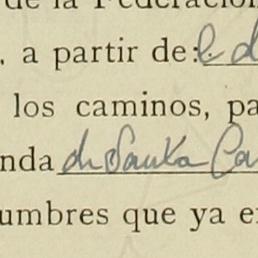 de la Federación
, a partir de:
los caminos, pa
nda de Santa Ca
umbres que ya e